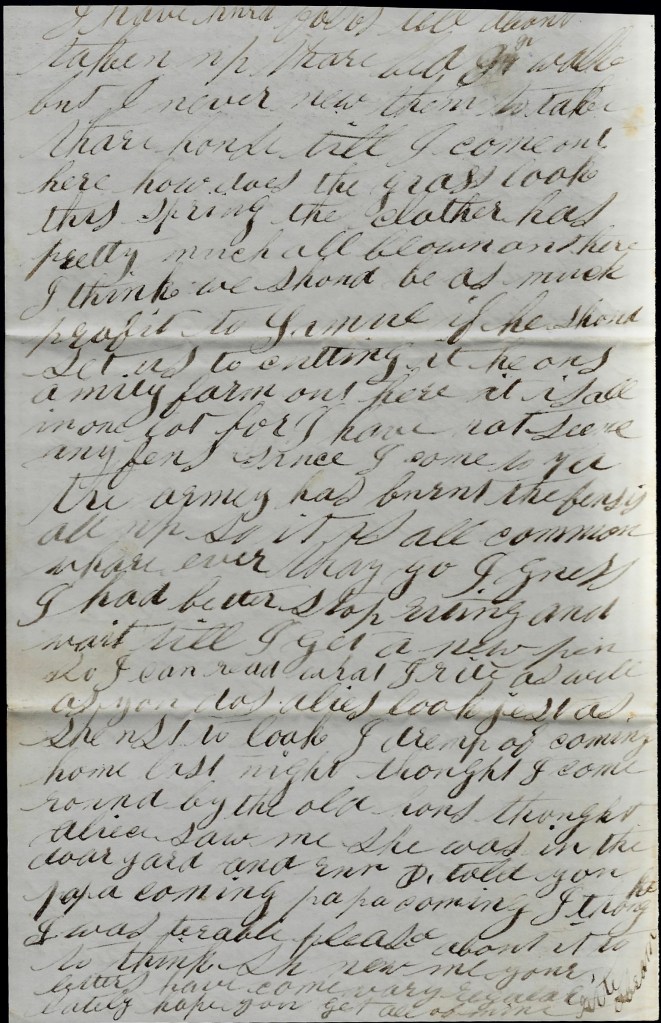 I have hurd folks tell about
taken up thare bed and walk
but I never new them to take
thare hous till I come out
here how does the grass look
this Spring the clother has
pretty much all blown out here
I think we shoud be as much
profit to Samuel if he shoud
Set us to cutting it he ons
a mity farm out here it is all
in one lot for I have not Seene
any fens Since I come to Va
the armey has burnt the fensis
all up So it is all common
whare ever thay go I guess
I had better Stop riting and
wait till I get a new pen
So I can read what I rite as well
as you dos alies look jest as
She ust to look I dremp of coming
home last night thought I come
round by the old hous thought
alice saw me she was in the
door yard and told you
papa coming papa coming I thought
I was terable pleased about it to
to think She new me your
letters have come vary regular
lately hope you get all of mine